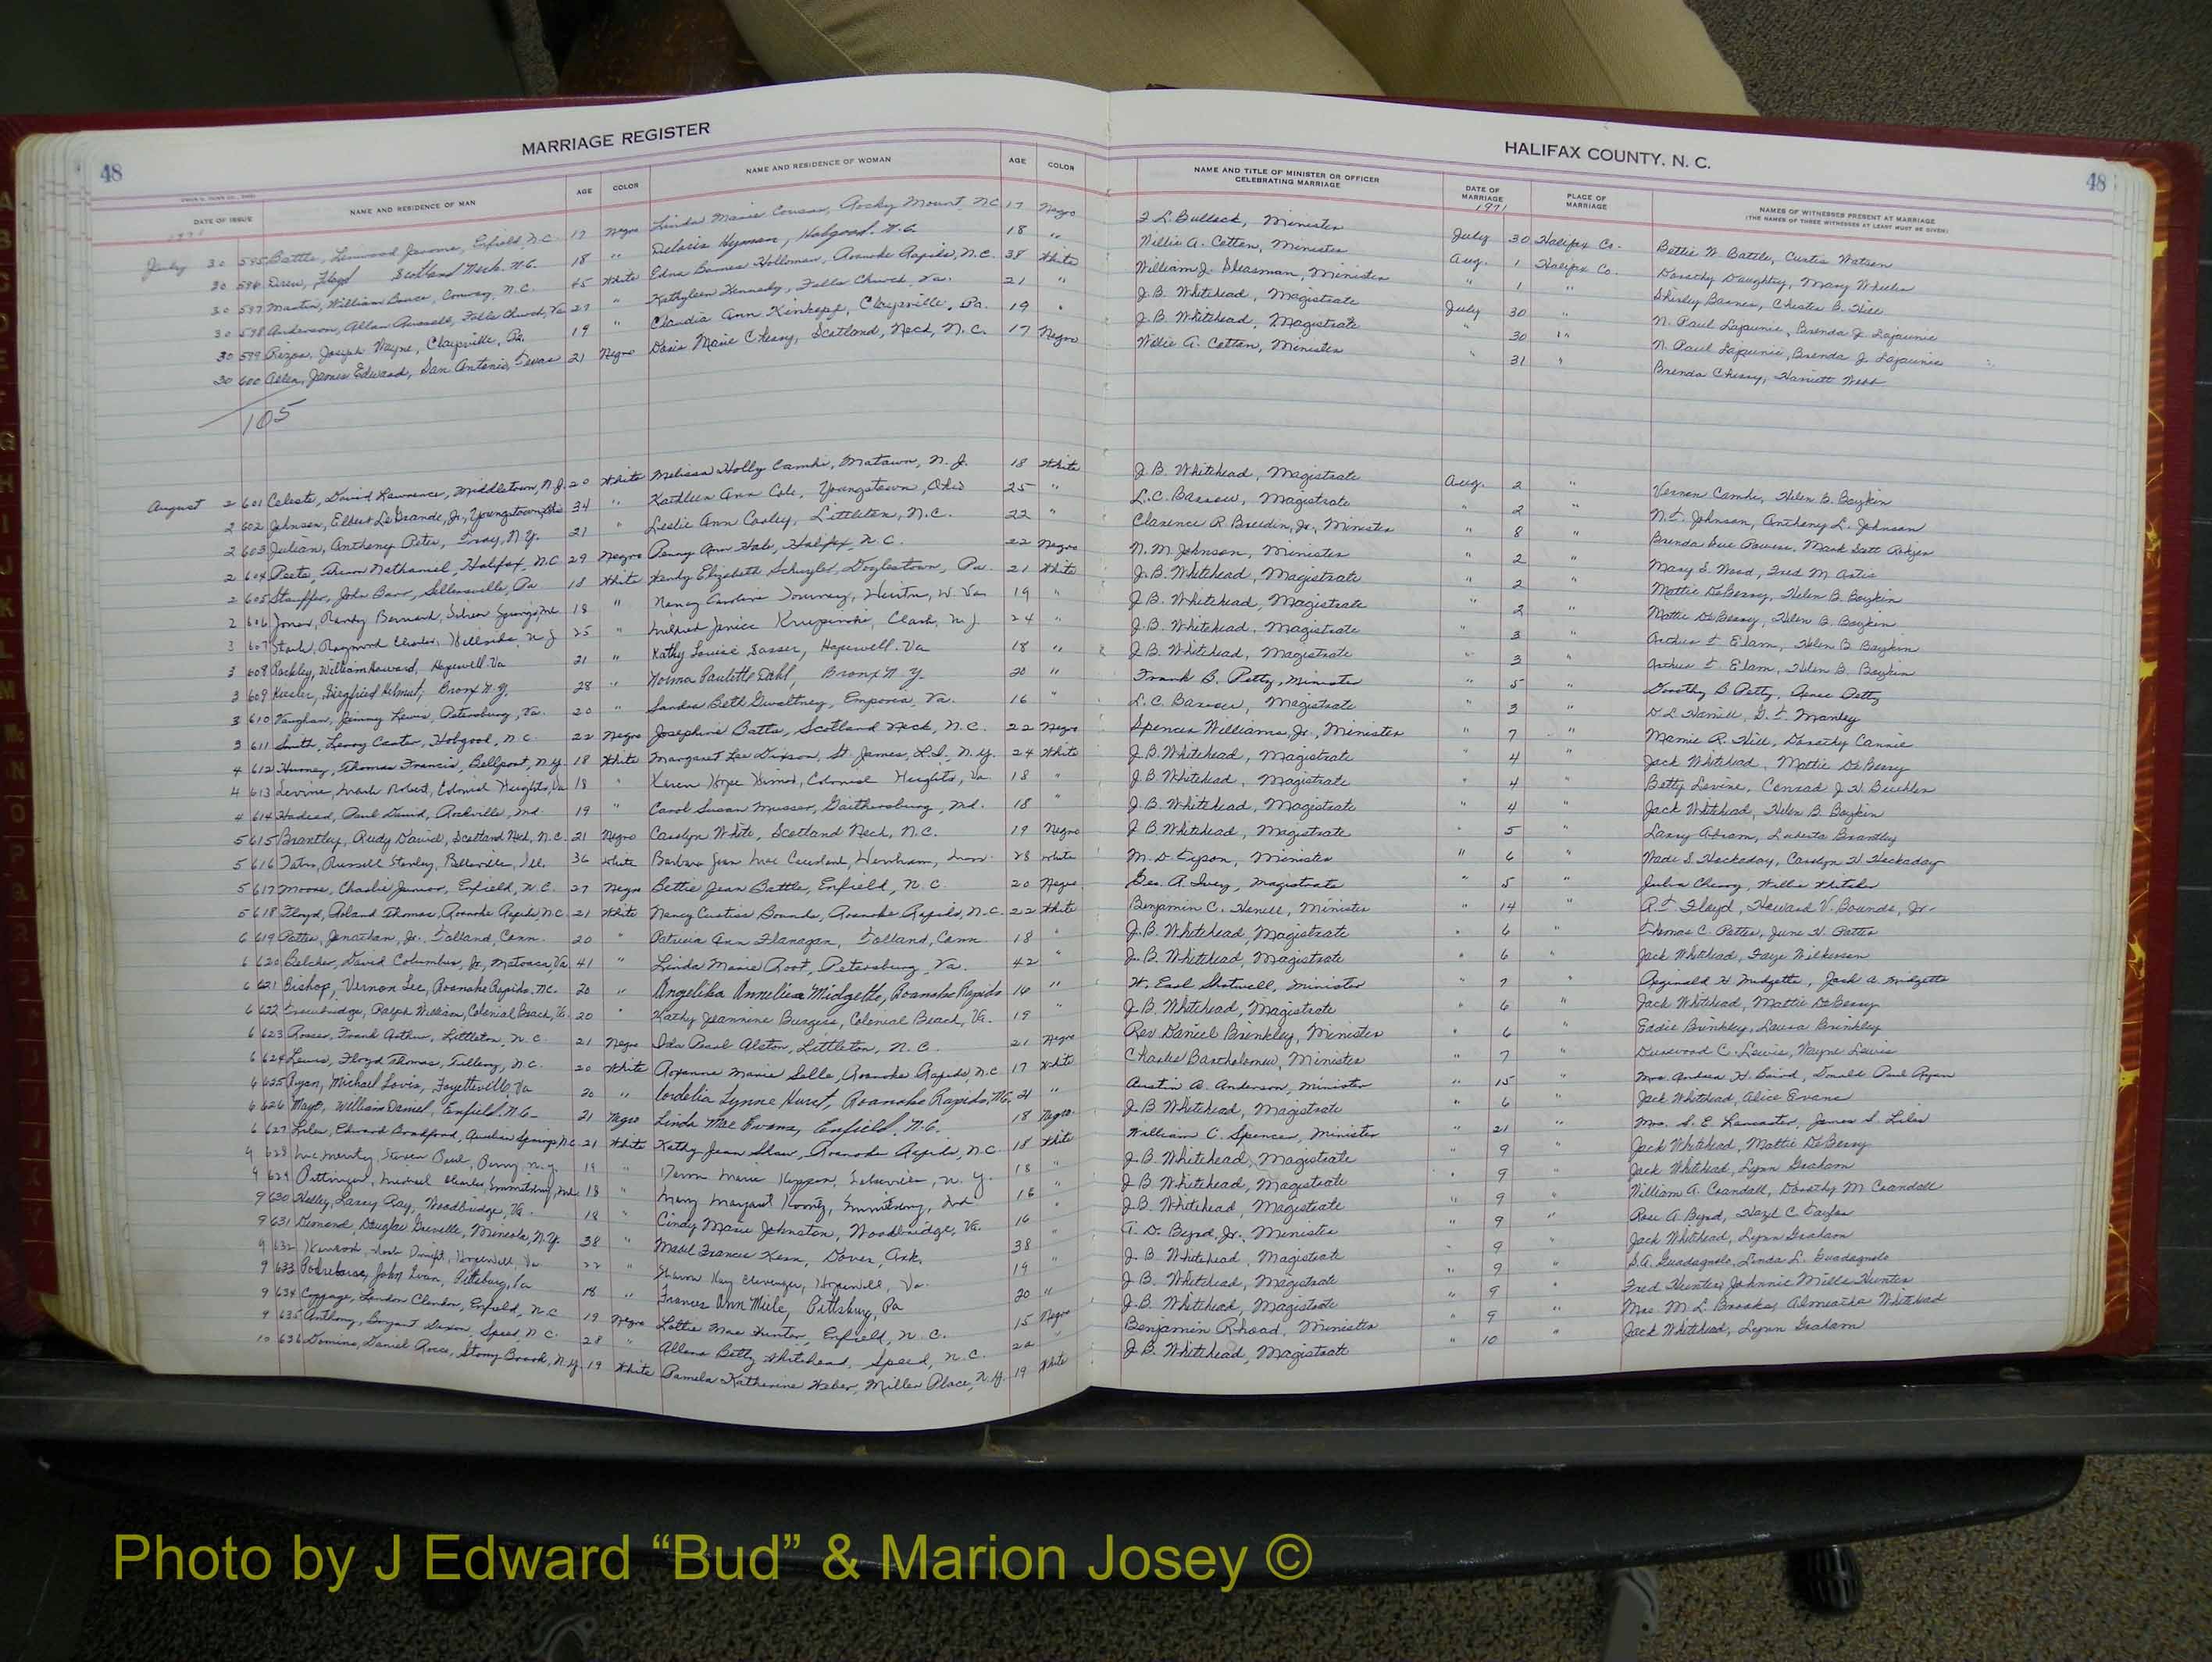 MARRIAGE REGISTER
HALIFAX COUNTY, N. C.
48
48
DATE OF ISSUE NAME AND RESIDENCE OF MAN AGE COLOR NAME AND RESIDENCE OF WOMAN AGE COLOR NAME AND TITLE OF MINISTER OR OFFICER CELEBRATING MARRIAGE DATE OF MARRIAGE PLACE OF MARRIAGE NAMES OF WITNESSES PRESENT AT MARRIAGE
(THE NAMES OF THREE WITNESSES AT LEAST MUST BE GIVEN)
1971
July 30 595 Battle, Linwood Jerome, Enfield, N.C. 17 Negro Linda Marie Rocky Mount, N.C. 17 Negro Bullock, Minister July 30 Halifax Co. Bettie W. Battle, Curtis Watson
30 596 Drew, Floyd Scotland Neck, N.C. 18 " Deloris Hyman, Hobgood, N.C. 18 " Willie A. Cotten, Minister Aug. 1 Halifax Co. Dorothy Daughtry, Mary Wheeler
30 597 Martin, William Conway, N.C. 65 White Edna Barnes Holloman, Roanoke Rapids, N.C. 38 White William J. Minister " 1 " Shirley Barnes, Chester B.
30 598 Anderson, Allan Russell, Falls Church, Va. 27 " Kathyleen Kennedy, Falls Church, Va. 21 " J.B. Whitehead, Magistrate July 30 " N. Paul Lajaunie, Brenda J. Lajaunie
30 599 Joseph Wayne, Claysville, Pa. 19 " Claudia Ann Claysville, Pa. 19 " J.B. Whitehead, Magistrate " 30 " N. Paul Lajaunie, Brenda J. Lajaunie
30 600 Allen, James Edward, San Antonio, Texas 21 Negro Doris Marie Cherry, Scotland, Neck, N.C. 17 Negro Willie A. Cotten, Minister " 31 " Brenda Cherry, Harriett Webb
105
August 2 601 Celeste, David Lawrence, Middletown, N.J. 20 White Melissa Holly Camhi, Matawn, N.J. 18 White J.B. Whitehead, Magistrate Aug. 2 " Vernon Camhi, Helen B. Boykin
2 602 Johnson, Elbert LeGrande, Jr., Youngstown, Ohio 34 " Kathleen Ann Cole, Youngstown, Ohio 25 " L.C. Barrow, Magistrate " 2 " N.T. Johnson, Anthony L. Johnson
2 603 Julian, Anthony Peter, Troy, N.Y. 21 " Leslie Ann Cooley, Littleton, N.C. 22 " Clarence R. Breedin, Jr., Minister " 8 " Brenda Sue Mark Scott
2 604 Nathaniel, Halifax, N.C. 29 Negro Penny Ann Hale, Halifax, N.C. 22 Negro N.M. Johnson, Minister " 2 " Mary S. Wood, Fred M. Artis
2 605 Stauffer, John Barr, Sellersville, Pa. 18 White Wendy Elizabeth Schuyler, Doylestown, Pa. 21 White J.B. Whitehead, Magistrate " 2 " Mattie DeBerry, Helen B. Boykin
2 606 Jones, Randy Bernard, Silver Springs, Md. 18 " Nancy Caroline W. Va. 19 " J.B. Whitehead, Magistrate " 2 " Mattie DeBerry, Helen B. Boykin
3 607 Stark, Raymond Charles, Hillside, N.J. 25 " Mildred Janice Clark, N.J. 24 " J.B. Whitehead, Magistrate " 3 " Arthur T. Elam, Helen B. Boykin
3 608 Rockley, William Howard, Hopewell, Va. 21 " Kathy Louise Sasser, Hopewell, Va. 18 " J.B. Whitehead, Magistrate " 3 " Arthur T. Elam, Helen B. Boykin
3 609 Siegfried Helmut, Bronx N.Y. 28 " Norma Paulette Dahl, Bronx N.Y. 20 " Frank B. Petty, Minister " 5 " Dorothy B. Petty, Renee Petty
3 610 Vaughan, Jimmy Lewis, Petersburg, Va. 20 " Sandra Beth Gwaltney, Emporia, Va. 16 " L.C. Barrow, Magistrate " 3 " D.L. Harrell, G.T. Manley
3 611 Smith, Leroy Carter, Hobgood, N.C. 22 Negro Josephine Batts, Scotland Neck, N.C. 22 Negro Spencer Williams, Jr., Minister " 7 " Mamie R. Hill, Dorothy Cannie
4 612 Thomas Francis, Bellport, N.Y. 18 White Margaret Lee Dixson, St. James, L.I., N.Y. 24 White J.B. Whitehead, Magistrate " 4 " Jack Whitehead, Mattie DeBerry
4 613 Levine, Mark Robert, Colonial Heights, Va. 18 " Karen Hope Colonial Heights, Va. 18 " J.B. Whitehead, Magistrate " 4 " Betty Levine, Conrad J.H.
4 614 Paul David, Rockville, Md. 19 " Carol Susan Musser, Gaithersburg, Md. 18 " J.B. Whitehead, Magistrate " 4 " Jack Whitehead, Helen B. Boykin
5 615 Brantley, Rudy David, Scotland Neck, N.C. 21 Negro Carolyn White, Scotland Neck, N.C. 19 Negro J.B. Whitehead, Magistrate " 5 " Larry Abram, Brantley
5 616 Tatro, Russell Stanley, Belleville, Ill. 36 White Barbara Jean Mac Causland, Wenham, Mass. 28 White M.D. Tyson, Minister " 6 " Wade S. Hockaday, Carolyn H. Hockaday
5 617 Moore, Charlie Junior, Enfield, N.C. 27 Negro Bettie Jean Battle, Enfield, N.C. 20 Negro Geo. A. Ivey, Magistrate " 5 " Julia Cherry, Willie Whitaker
5 618 Floyd, Roland Thomas, Roanoke Rapids, N.C. 21 White Nancy Curtiss Bounds, Roanoke Rapids, N.C. 22 White Benjamin C. Minister " 14 " R.T. Floyd, Howard V. Bounds, Jr.
6 619 Patten, Jonathan, Jr., Tolland, Conn. 20 " Patricia Ann Flanagan, Tolland, Conn. 18 " J.B. Whitehead, Magistrate " 6 " Thomas C. Patten, June H. Patten
6 620 Belcher, David Columbus, Jr., Matoaca, Va. 41 " Linda Marie Root, Petersburg, Va. 42 " J.B. Whitehead, Magistrate " 6 " Jack Whitehead, Faye Wilkerson
6 621 Bishop, Vernon Lee, Roanoke Rapids, N.C. 20 " Angelika Annelise Midgette, Roanoke Rapids 16 " W. Earl Shotwell, Minister " 7 " Reginald H. Midgette, Jack A. Midgette
6 622 Trowbridge, Ralph William, Colonial Beach, Va. 20 " Kathy Jeannine Burgess, Colonial Beach, Va. 19 " J.B. Whitehead, Magistrate " 6 " Jack Whitehead, Mattie DeBerry
6 623 Rosser, Frank Arthur, Littleton, N.C. 21 Negro Ida Pearl Alston, Littleton, N.C. 21 Negro Rev Daniel Brinkley, Minister " 6 " Eddie Brinkley, Laura Brinkley
6 624 Lewis, Floyd Thomas, Tillery, N.C. 20 White Roxanne Marie Selle, Roanoke Rapids, N.C. 17 White Charlie Bartholomew, Minister " 7 " Durwood C. Lewis, Wayne Lewis
6 625 Ryan, Michael Lovis, Fayetteville, Va 20 " Cordelia Lynne Hurst, Roanoke Rapids, N.C. 21 " Austin A. Anderson, Minister " 15 " Mrs. Andrea H. Baird, Donald Paul Ryan
6 626 Mayo, William Daniel, Enfield, N.C. 21 Negro Linda Mae Evans, Enfield, N.C. 18 Negro J.B. Whitehead, Magistrate " 6 " Jack Whitehead, Alice Evans
6 627 Liles, Edward Bradford, Aurelian Springs, N.C. 21 White Kathy Jean Shaw, Roanoke Rapids, N.C. 18 White William C. Spencer, Minister " 21 " Mrs. S.E. Lancaster, James S. Liles
9 628 Steven Paul, Perry, N.Y. 19 " Dawn Marie N.Y. 18 " J.B. Whitehead, Magistrate " 9 " Jack Whitehead, Mattie DeBerry
9 629 Michael Charles, Emmitsburg, Md. 18 " Mary Margaret Koontz, Emmitsburg, Md. 16 " J.B. Whitehead, Magistrate " 9 " Jack Whitehead, Lynn Graham
9 630 Kelley, Larry Ray, Woodbridge, Va. 18 " Cindy Marie Johnston, Woodbridge, Va. 16 " J.B. Whitehead, Magistrate " 9 " William A. Crandall, Dorothy M. Crandall
9 631 Douglas Mineola, N.Y. 38 " Mabel Frances Kern, Dover, Ark. 38 " A.D. Byrd, Jr., Minister " 9 " Rose A. Byrd, Hazel C. Taylor
9 632 Dwight, Hopewell, Va. 22 " Sharon Kay Clevenger, Hopewell, Va. 19 " J.B. Whitehead, Magistrate " 9 " Jack Whitehead, Lynn Graham
9 633 John Ivan, Pittsburg, Pa 18 " Frances Ann Miele, Pittsburg, Pa 20 " J.B. Whitehead, Magistrate " 9 " S.A. Guadagnolo, Linda L. Guadagnolo
9 634 Landon Clendon, Enfield, N.C. 19 Negro Lottie Mae Hunter, Enfield, N.C. 15 Negro J.B. Whitehead, Magistrate " 9 " Fred Hunter, Johnnie Mills Hunter
9 635 Anthony, Bryant Daxon, Speed, N.C. 28 " Allena Betty Whitehead, Speed, N.C. 22 " Benjamin Rhoad, Minister " 9 " Mrs. M.L. Brooks, Whitehead
10 636 Domino, Daniel Rocco, Stony Brook, N.Y. 19 White Pamela Katherine Weber, Miller Place, N.Y. 19 White J.B. Whitehead, Magistrate " 10 " Jack Whitehead, Lynn Graham
Photo by J Edward “Bud” & Marion Josey ©